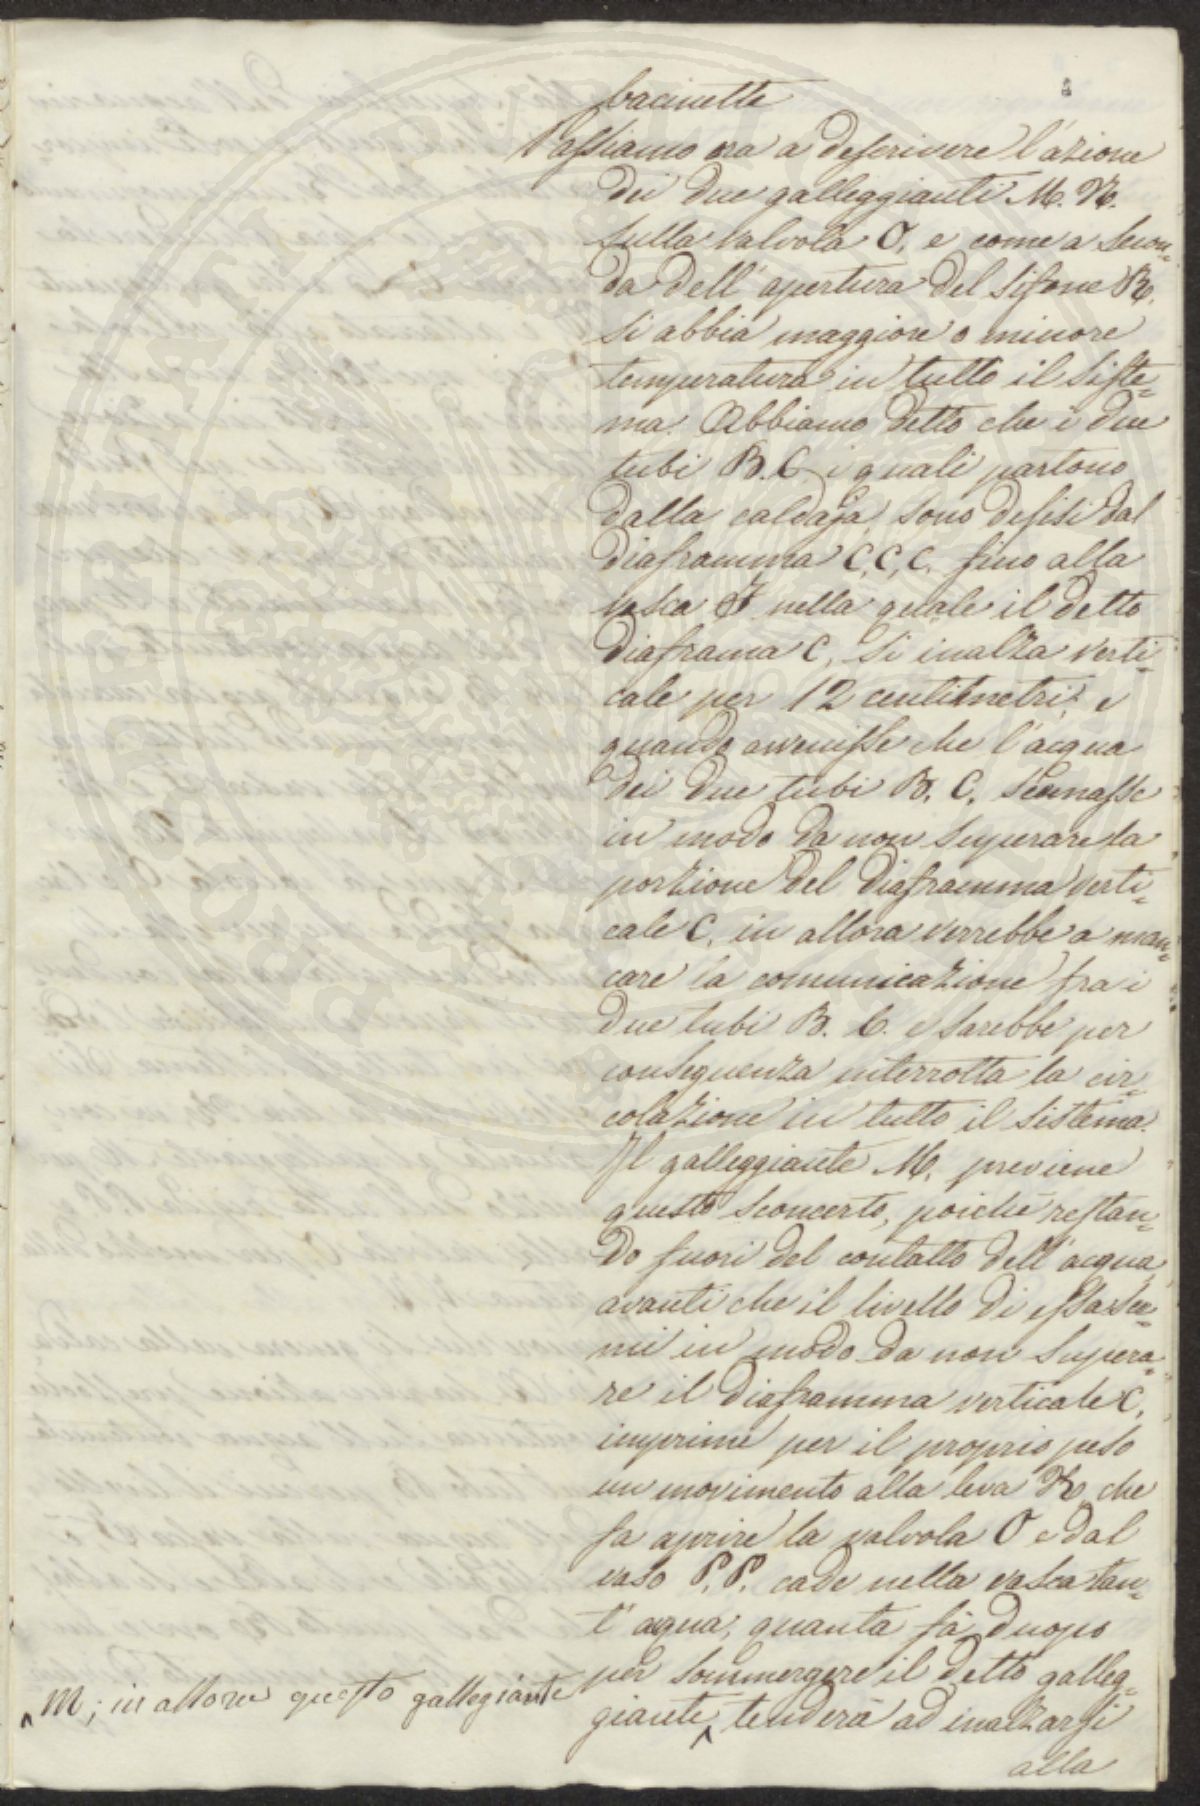 bacinette
Passiamo ora a descrivere l'azione
dei due galleggianti M. N.
sulla valvola O. e come a secon=
da dell'apertura del sifone R.
si abbia maggiore o minore
temperatura in tutto il siste=
ma. Abbiamo detto che i due
tubi B. C. i quali partono
dalla caldaja sono desisi dal
diaframma C, C, C. fino alla
vasca F nella quale il detto
diaframa C, si inalza verti=
cale per 12 centimetri, e
quando avvenisse che l'acqua
dei due tubi B. C. scemasse
in modo da non superare la
porzione del diaframma verti=
cale C. in allora verrebbe a man=
care la comunicazione fra i
due tubi B. C. e sarebbe per
conseguenza interrotta la cir=
colazione in tutto il sistema.
Il galleggiante M, previene
questo sconcerto, poichè restan=
do fuori del contatto dell'acqua,
avanti che il livello di essa sce=
mi in modo da non supera=
re il diaframma verticale C,
imprime per il proprio peso
un movimento alla leva K che
fa aprire la valvola O e dal
vaso P. P. cade nella vasca tan=
t'acqua, quanta fà duopo
per sommergere il detto galleg=
giante ^ tenderà ad inalzarsi
^ M; in allora questo gallegiante
alla